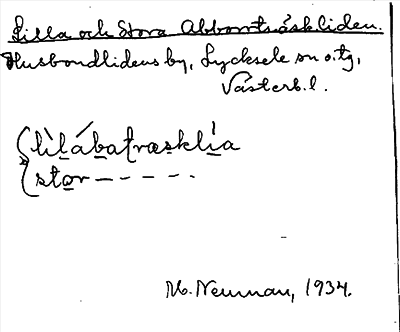 Lilla och Stora Abborrträskliden.
Husbondlidens by, Lycksele sn o. tg,
Västerb. l.
lìlábatræsklía
stor – – – – –
M. Neuman, 1934.